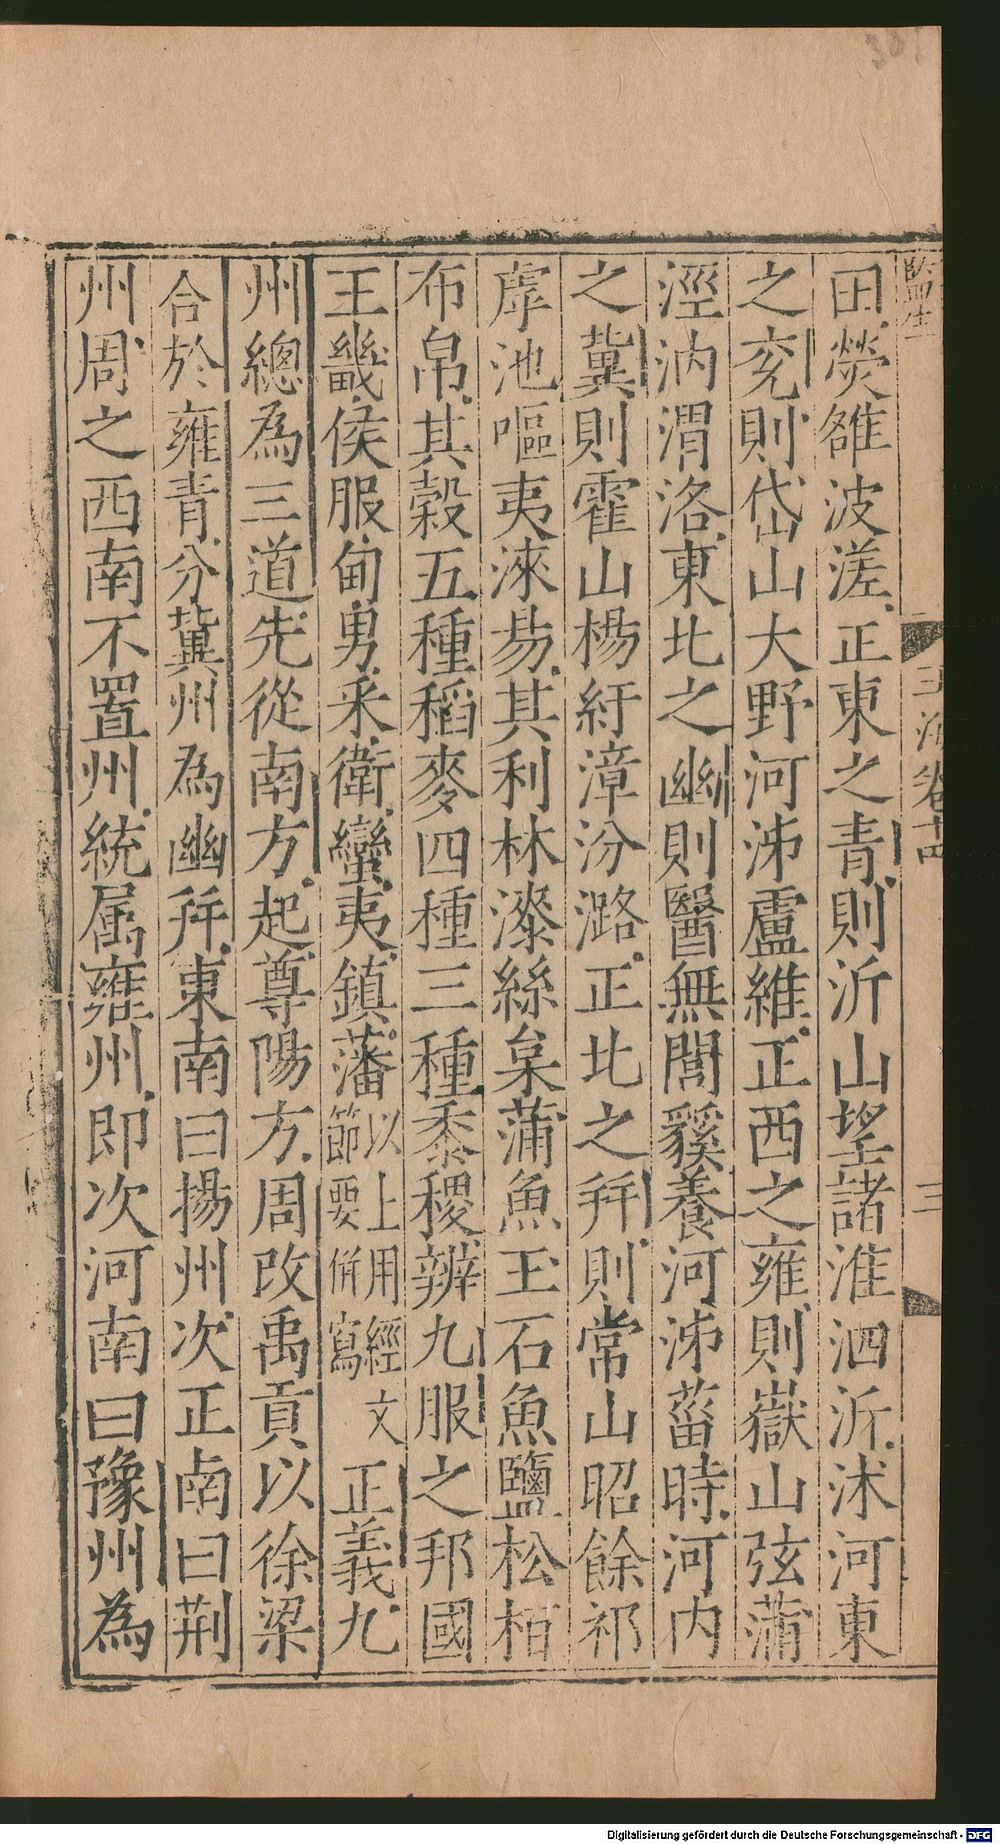 監生
玉海卷十四
三
田滎雒波溠正東之青則沂山望諸淮泗沂沭河東
之兖則岱山大野河泲盧維正西之雍則嶽山弦蒲
涇汭渭洛東北之幽則醫無閭豯養河泲菑時河内
之冀則霍山楊紆漳汾潞正北之幷則常山昭餘祁
虖池嘔夷淶易其利林漆絲枲蒲魚玉石魚鹽松柏
布帛其穀五種稻麥四種三種黍稷辨九服之邦國
王畿侯服甸男采衛蠻夷鎮藩以上用經文節要併寫正義九
州總為三道先從南方起尊陽方周改禹貢以徐梁
合於雍青分冀州為幽幷東南曰揚州次正南曰荆
州周之西南不置州統属雍州即次河南曰豫州為
Digitalisierung gefördert durch die Deutsche Forschungsgemeinschaft - DFG